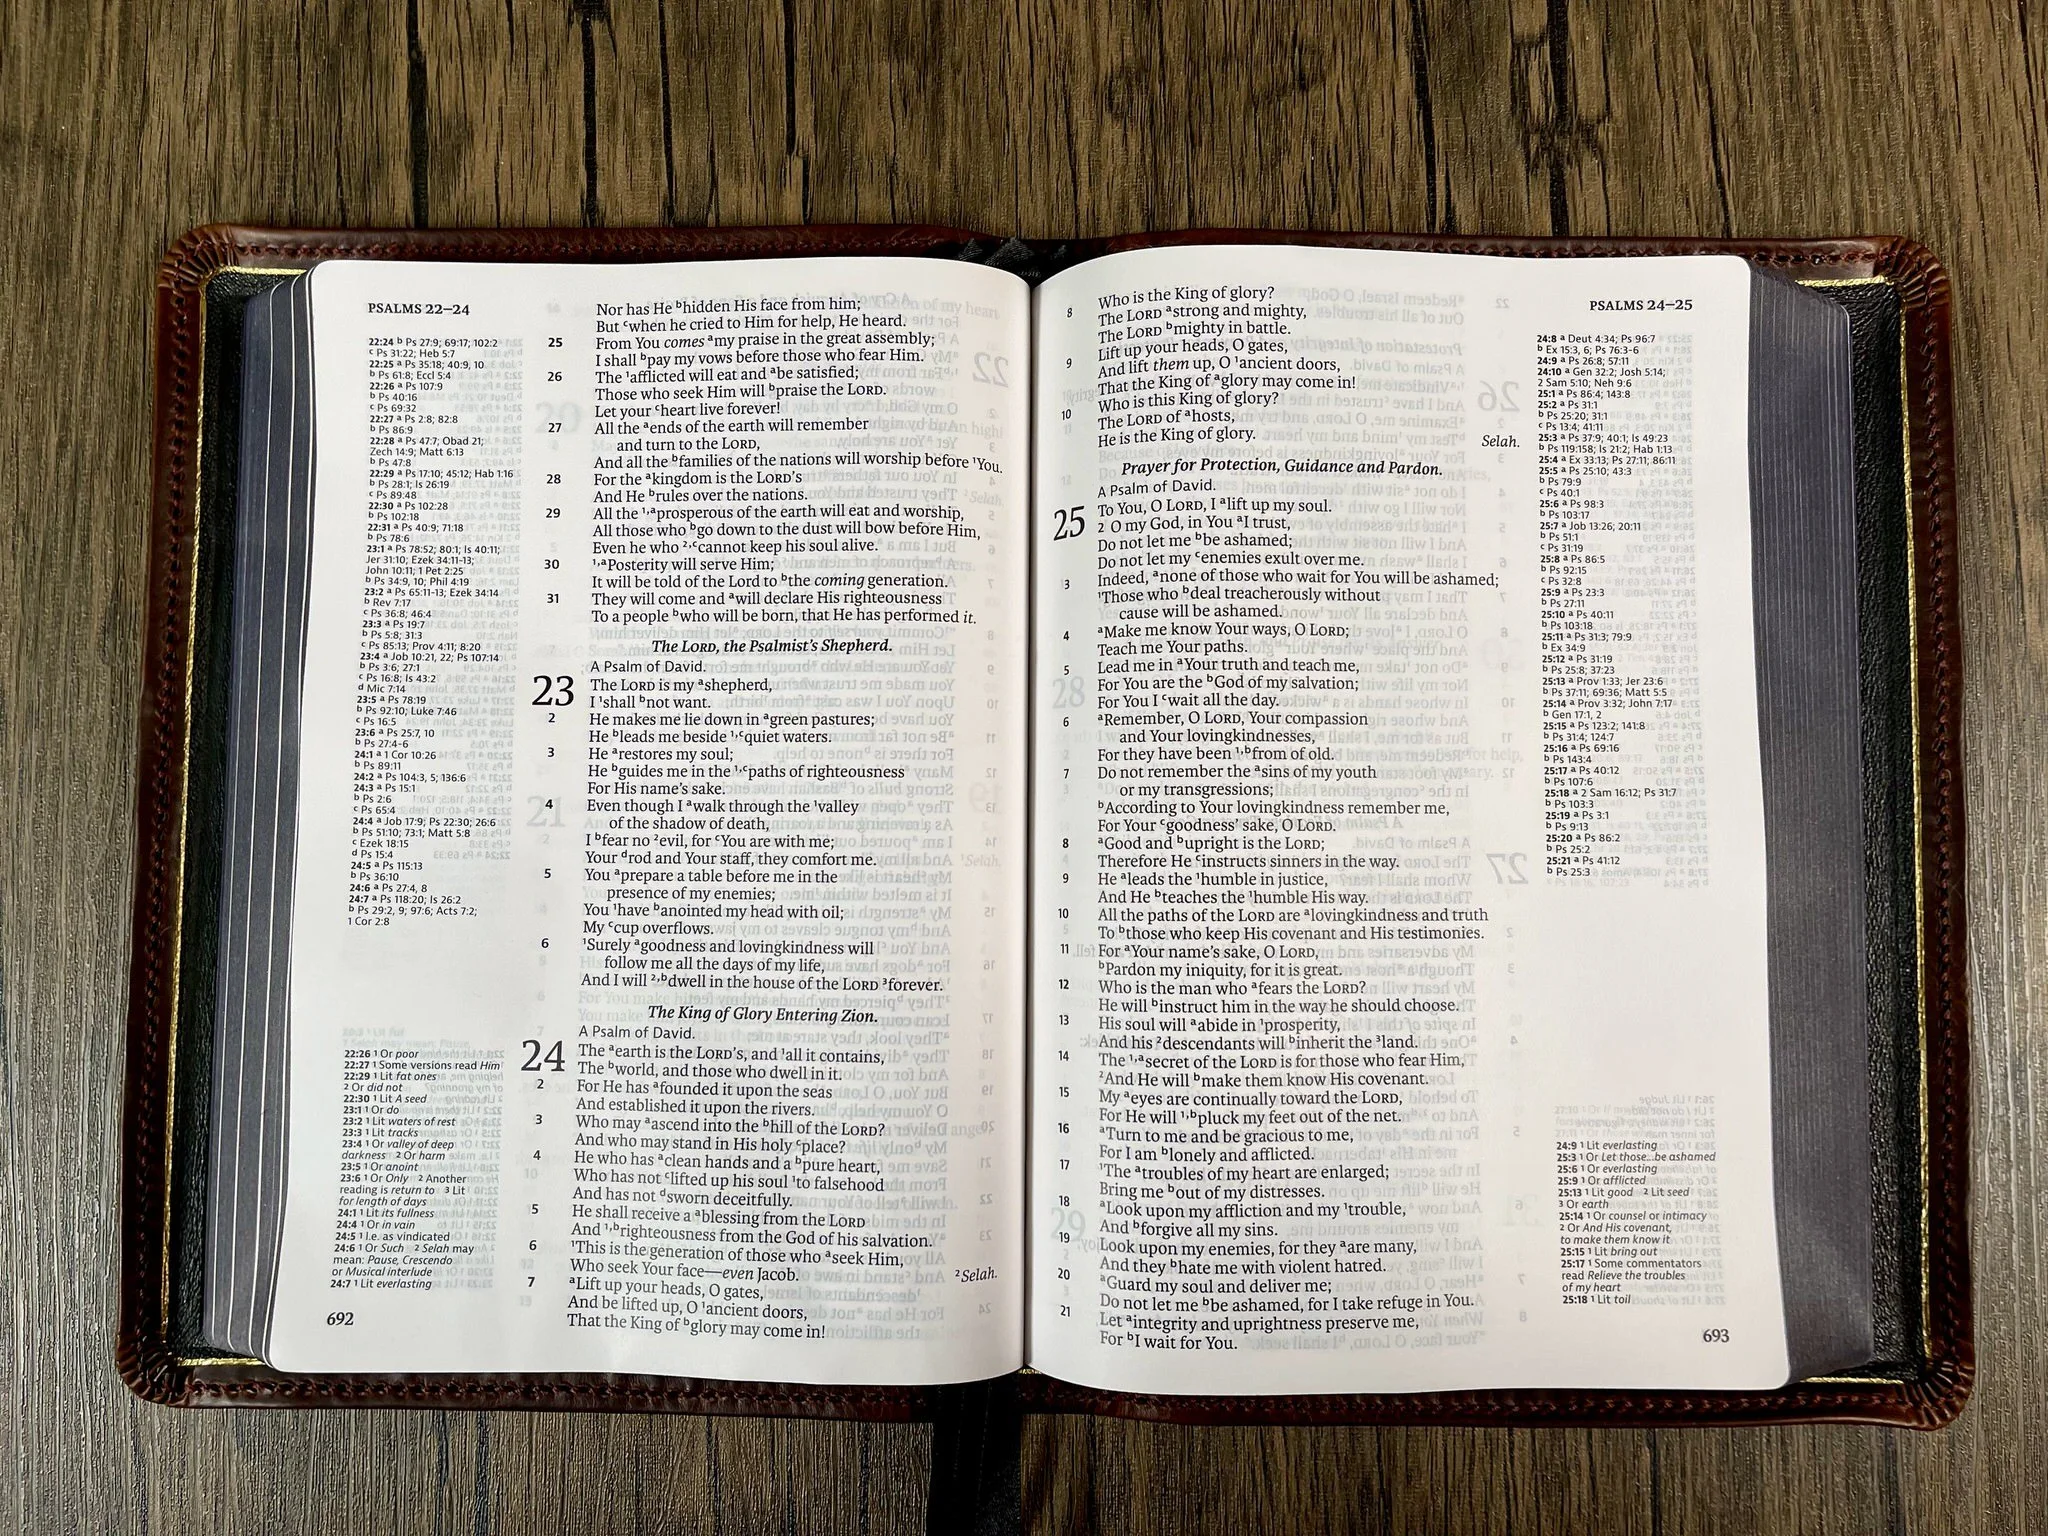 PSALMS 22–24
22:24 b Ps 27:9; 69:17; 102:2
c Ps 31:22; Heb 5:7
22:25 a Ps 35:18; 40:9, 10
b Ps 61:8; Eccl 5:4
22:26 a Ps 107:9
b Ps 40:16
c Ps 69:32
22:27 a Ps 2:8; 82:8
b Ps 86:9
22:28 a Ps 47:7; Obad 21;
Zech 14:9; Matt 6:13
b Ps 47:8
22:29 a Ps 17:10; 45:12; Hab 1:16
b Ps 28:1; Is 26:19
c Ps 89:48
22:30 a Ps 102:28
b Ps 102:18
22:31 a Ps 40:9; 71:18
b Ps 78:6
23:1 a Ps 78:52; 80:1; Is 40:11;
Jer 31:10; Ezek 34:11-13;
John 10:11; 1 Pet 2:25
b Ps 34:9, 10; Phil 4:19
23:2 a Ps 65:11-13; Ezek 34:14
b Rev 7:17
c Ps 36:8; 46:4
23:3 a Ps 19:7
b Ps 5:8; 31:3
c Ps 85:13; Prov 4:11; 8:20
23:4 a Job 10:21, 22; Ps 107:14
b Ps 3:6; 27:1
c Ps 16:8; Is 43:2
d Mic 7:14
23:5 a Ps 78:19
b Ps 92:10; Luke 7:46
c Ps 16:5
23:6 a Ps 25:7, 10
b Ps 27:4-6
24:1 a 1 Cor 10:26
b Ps 89:11
24:2 a Ps 104:3, 5; 136:6
24:3 a Ps 15:1
b Ps 2:6
c Ps 65:4
24:4 a Job 17:9; Ps 22:30; 26:6
b Ps 51:10; 73:1; Matt 5:8
c Ezek 18:15
d Ps 15:4
24:5 a Ps 115:13
b Ps 36:10
24:6 a Ps 27:4, 8
24:7 a Ps 118:20; Is 26:2
b Ps 29:2, 9; 97:6; Acts 7:2;
1 Cor 2:8
22:26 1 Or poor
22:27 1 Some versions read Him
22:29 1 Lit fat ones
2 Or did not
22:30 1 Lit A seed
23:1 1 Or do
23:2 1 Lit waters of rest
23:3 1 Lit tracks
23:4 1 Or valley of deep
darkness 2 Or harm
23:5 1 Or anoint
23:6 1 Or Only 2 Another
reading is return to 3 Lit
for length of days
24:1 1 Lit its fullness
24:4 1 Or in vain
24:5 1 I.e. as vindicated
24:6 1 Or Such 2 Selah may
mean: Pause, Crescendo
or Musical interlude
24:7 1 Lit everlasting
692
Nor has He bhidden His face from him;
But cwhen he cried to Him for help, He heard.
25 From You comes amy praise in the great assembly;
I shall bpay my vows before those who fear Him.
26 The 1afflicted will eat and abe satisfied;
Those who seek Him will bpraise the LORD.
Let your cheart live forever!
27 All the aends of the earth will remember
and turn to the LORD,
And all the bfamilies of the nations will worship before 1You.
28 For the akingdom is the LORD's
And He brules over the nations.
29 All the 1,aprosperous of the earth will eat and worship,
All those who bgo down to the dust will bow before Him,
Even he who 2,ccannot keep his soul alive.
30 1,aPosterity will serve Him;
It will be told of the Lord to bthe coming generation.
31 They will come and awill declare His righteousness
To a people bwho will be born, that He has performed it.
The LORD, the Psalmist's Shepherd.
A Psalm of David.
23 The LORD is my ashepherd,
I 1shall bnot want.
2 He makes me lie down in agreen pastures;
He bleads me beside 1,cquiet waters.
3 He arestores my soul;
He bguides me in the 1,cpaths of righteousness
For His name's sake.
4 Even though I awalk through the 1valley
of the shadow of death,
I bfear no 2evil, for cYou are with me;
Your drod and Your staff, they comfort me.
5 You aprepare a table before me in the
presence of my enemies;
You 1have banointed my head with oil;
My ccup overflows.
6 1Surely agoodness and lovingkindness will
follow me all the days of my life,
And I will 2,bdwell in the house of the LORD 3forever.
The King of Glory Entering Zion.
A Psalm of David.
24 The aearth is the LORD's, and 1all it contains,
The bworld, and those who dwell in it.
2 For He has afounded it upon the seas
And established it upon the rivers.
3 Who may aascend into the bhill of the LORD?
And who may stand in His holy cplace?
4 He who has aclean hands and a bpure heart,
Who has not clifted up his soul 1to falsehood
And has not dsworn deceitfully.
5 He shall receive a ablessing from the LORD
And 1,brighteousness from the God of his salvation.
6 1This is the generation of those who aseek Him,
Who seek Your face—even Jacob. 2Selah.
7 aLift up your heads, O gates,
And be lifted up, O 1ancient doors,
That the King of bglory may come in!
Who is the King of glory?
8 The LORD astrong and mighty,
The LORD bmighty in battle.
9 Lift up your heads, O gates,
And lift them up, O 1ancient doors,
That the King of aglory may come in!
10 Who is this King of glory?
The LORD of ahosts,
He is the King of glory. Selah.
Prayer for Protection, Guidance and Pardon.
A Psalm of David.
25 To You, O LORD, I alift up my soul.
2 O my God, in You aI trust,
Do not let me bbe ashamed;
Do not let my cenemies exult over me.
3 Indeed, anone of those who wait for You will be ashamed;
1Those who bdeal treacherously without
cause will be ashamed.
4 aMake me know Your ways, O LORD;
Teach me Your paths.
5 Lead me in aYour truth and teach me,
For You are the bGod of my salvation;
For You I cwait all the day.
6 aRemember, O LORD, Your compassion
and Your lovingkindnesses,
For they have been 1,bfrom of old.
7 Do not remember the asins of my youth
or my transgressions;
bAccording to Your lovingkindness remember me,
For Your cgoodness' sake, O LORD.
8 aGood and bupright is the LORD;
Therefore He cinstructs sinners in the way.
9 He aleads the 1humble in justice,
And He bteaches the 1humble His way.
10 All the paths of the LORD are alovingkindness and truth
To bthose who keep His covenant and His testimonies.
11 For aYour name's sake, O LORD,
bPardon my iniquity, for it is great.
12 Who is the man who afears the LORD?
He will binstruct him in the way he should choose.
13 His soul will aabide in 1prosperity,
And his 2descendants will binherit the 3land.
14 The 1,asecret of the LORD is for those who fear Him,
2And He will bmake them know His covenant.
15 My aeyes are continually toward the LORD,
For He will 1,bpluck my feet out of the net.
16 aTurn to me and be gracious to me,
For I am blonely and afflicted.
17 1The atroubles of my heart are enlarged;
Bring me bout of my distresses.
18 aLook upon my affliction and my 1trouble,
And bforgive all my sins.
19 Look upon my enemies, for they aare many,
And they bhate me with violent hatred.
20 aGuard my soul and deliver me;
Do not let me bbe ashamed, for I take refuge in You.
21 Let aintegrity and uprightness preserve me,
For bI wait for You.
PSALMS 24–25
24:8 a Deut 4:34; Ps 96:7
b Ex 15:3, 6; Ps 76:3-6
24:9 a Ps 26:8; 57:11
24:10 a Gen 32:2; Josh 5:14;
2 Sam 5:10; Neh 9:6
25:1 a Ps 86:4; 143:8
25:2 a Ps 31:1
b Ps 25:20; 31:1
c Ps 13:4; 41:11
25:3 a Ps 37:9; 40:1; Is 49:23
b Ps 119:158; Is 21:2; Hab 1:13
25:4 a Ex 33:13; Ps 27:11; 86:11
25:5 a Ps 25:10; 43:3
b Ps 79:9
c Ps 40:1
25:6 a Ps 98:3
b Ps 103:17
25:7 a Job 13:26; 20:11
b Ps 51:1
c Ps 31:19
25:8 a Ps 86:5
b Ps 92:15
c Ps 32:8
25:9 a Ps 23:3
b Ps 27:11
25:10 a Ps 40:11
b Ps 103:18
25:11 a Ps 31:3; 79:9
b Ex 34:9
25:12 a Ps 31:19
b Ps 25:8; 37:23
25:13 a Prov 1:33; Jer 23:6
b Ps 37:11; 69:36; Matt 5:5
25:14 a Prov 3:32; John 7:17
b Gen 17:1, 2
25:15 a Ps 123:2; 141:8
b Ps 31:4; 124:7
25:16 a Ps 69:16
b Ps 143:4
25:17 a Ps 40:12
b Ps 107:6
25:18 a 2 Sam 16:12; Ps 31:7
b Ps 103:3
25:19 a Ps 3:1
b Ps 9:13
25:20 a Ps 86:2
b Ps 25:2
25:21 a Ps 41:12
b Ps 25:3
24:9 1 Lit everlasting
25:3 1 Or Let those...be ashamed
25:6 1 Or everlasting
25:9 1 Or afflicted
25:13 1 Lit good 2 Lit seed
3 Or earth
25:14 1 Or counsel or intimacy
2 Or And His covenant,
to make them know it
25:15 1 Lit bring out
25:17 1 Some commentators
read Relieve the troubles
of my heart
25:18 1 Lit toil
693